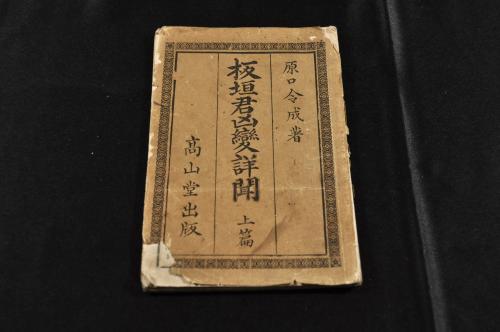 原口令成著
板垣君凶變詳聞 上篇
高山堂出版